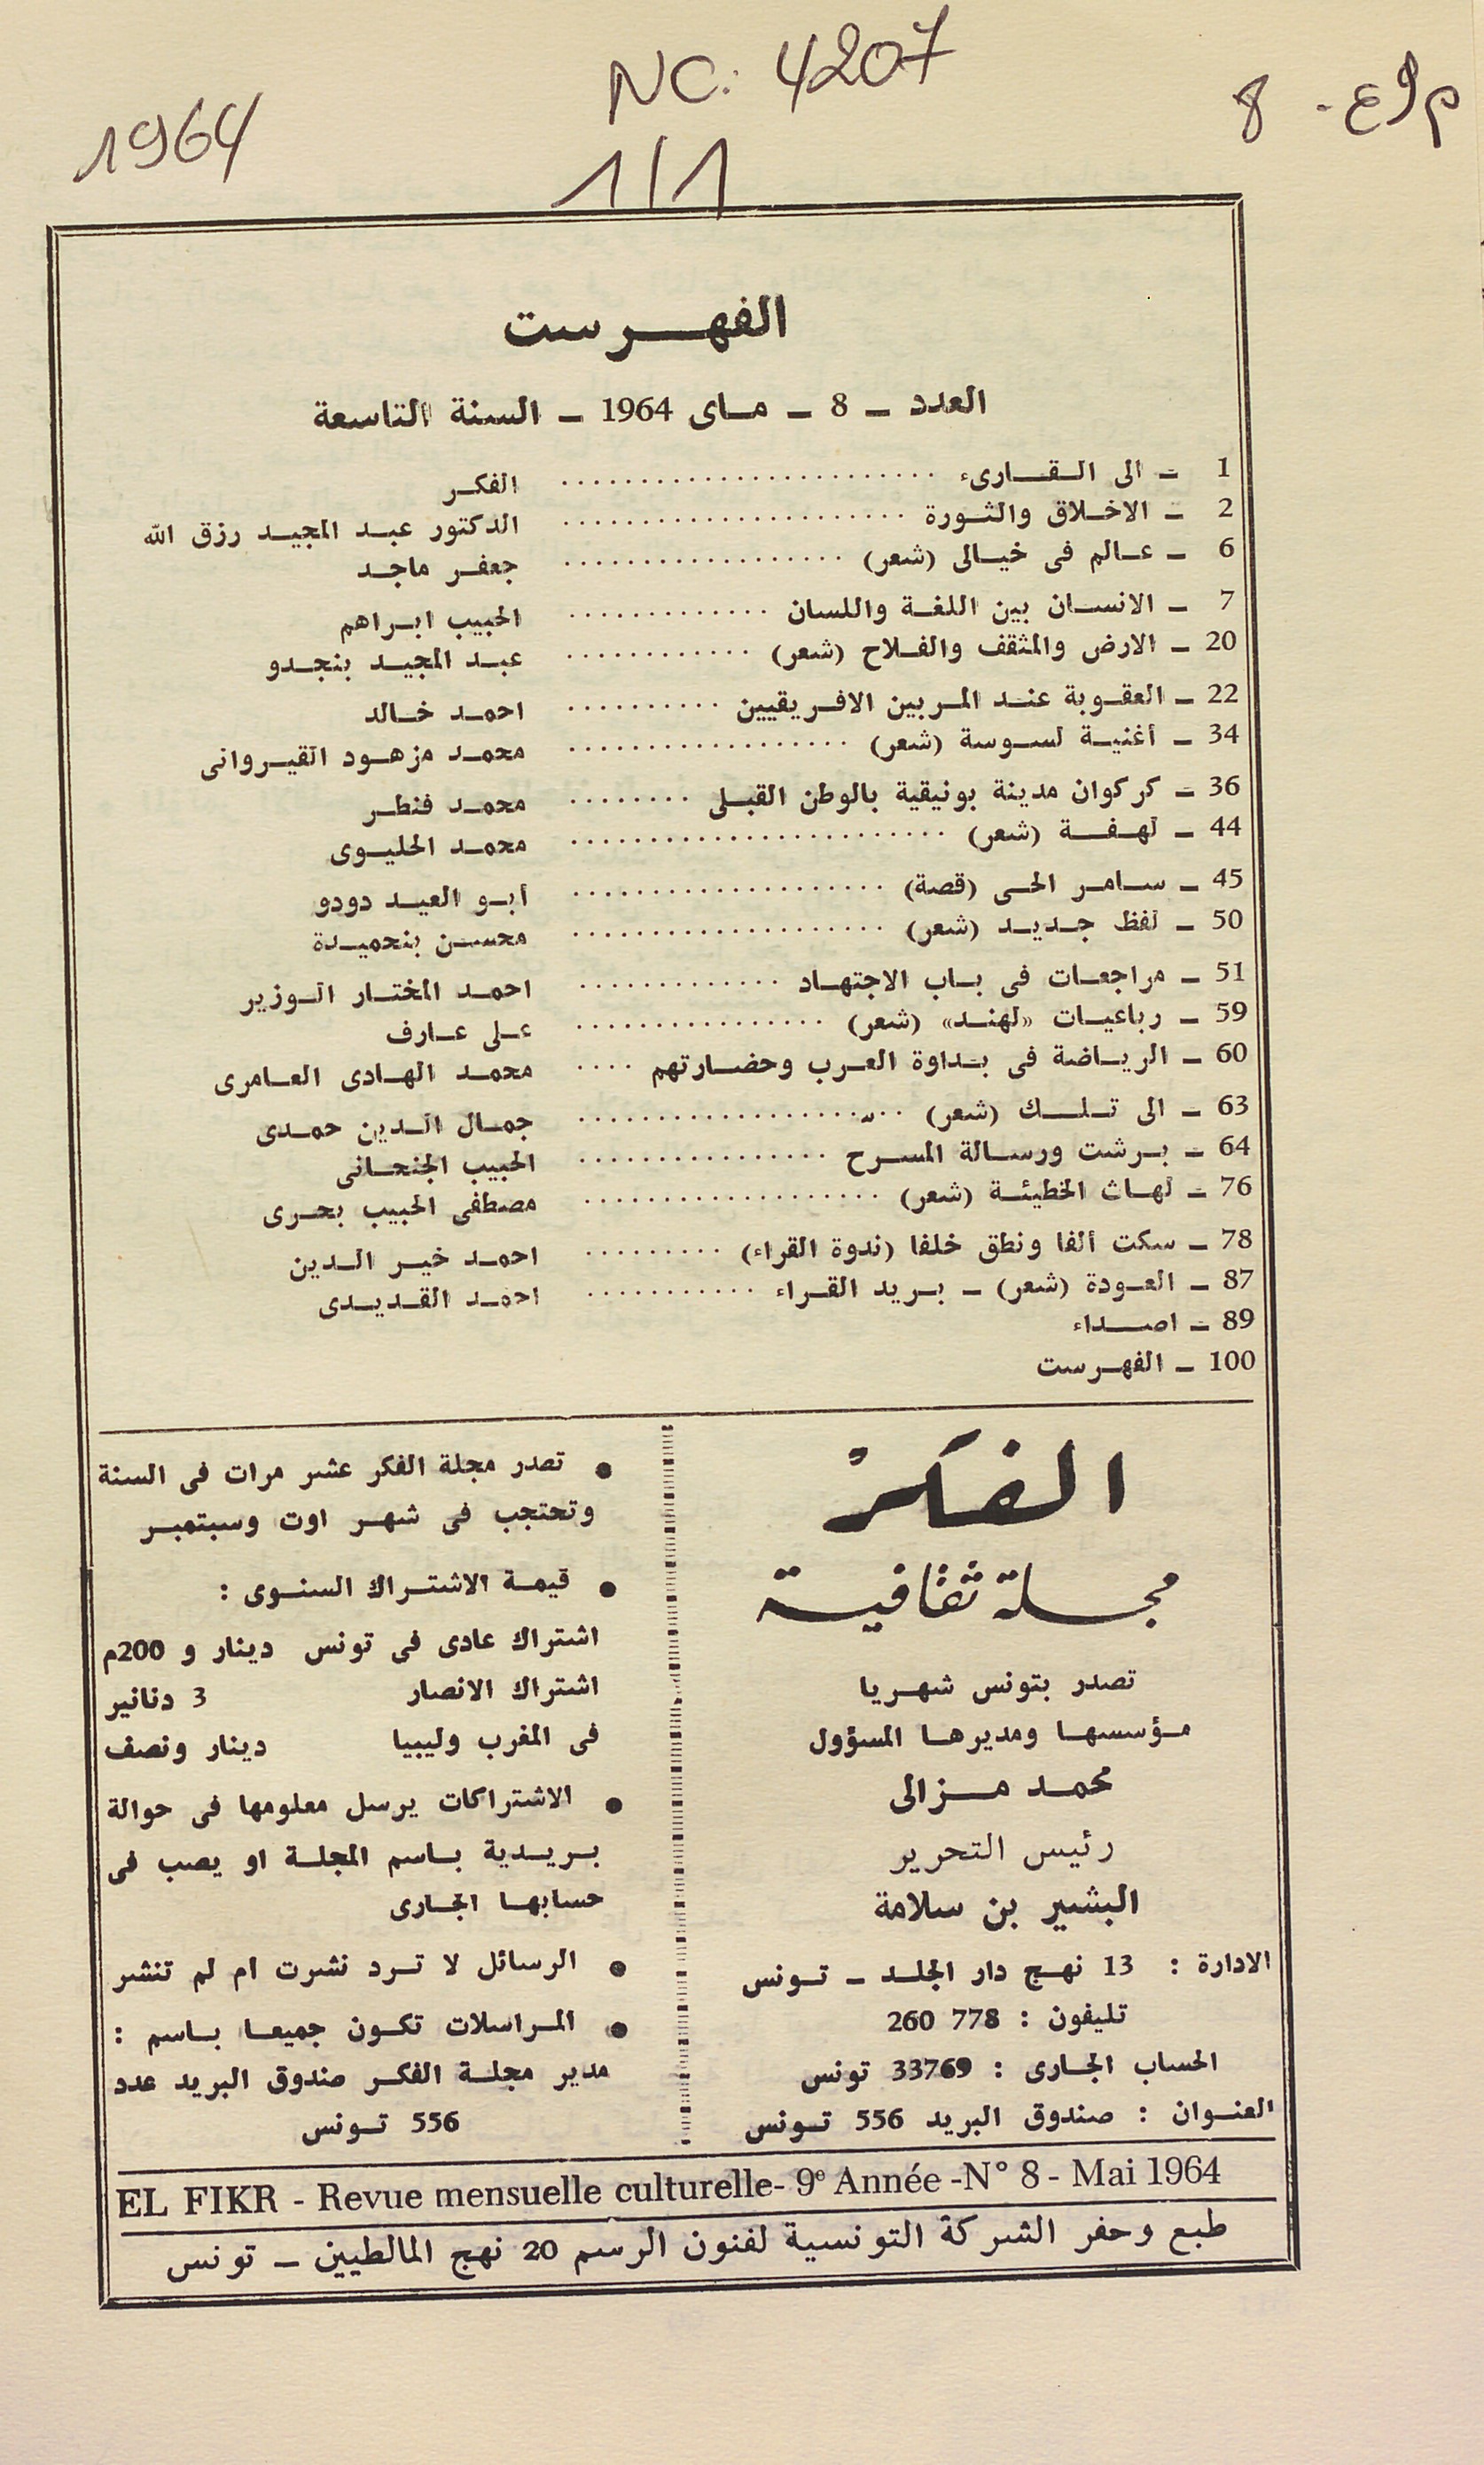 NC: 4207
1964
8 - م9ع
1/1
الفهرست
العدد ــ 8 ــ ماى 1964 ــ السنة التاسعة
1 ــ الى القارىء ........................ الفكر
2 ــ الاخلاق والثورة ...................... الدكتور عبد المجيد رزق الله
6 ــ عالم فى خيالى (شعر) .................. جعفر ماجد
7 ــ الانسان بين اللغة واللسان ............. الحبيب ابراهم
20 ــ الارض والمثقف والفلاح (شعر) ............ عبد المجيد بنجدو
22 ــ العقوبة عند المربين الافريقيين .......... احمد خالد
34 ــ أغنية لسوسة (شعر) .................. محمد مزهود القيروانى
36 ــ كركوان مدينة بونيقية بالوطن القبلى ........ محمد فنطر
44 ــ لهفة (شعر) ........................ محمد الحليوى
45 ــ سامر الحى (قصة) .................... أبو العيد دودو
50 ــ لفظ جديد (شعر) .................... محسن بنحميدة
51 ــ مراجعات فى باب الاجتهاد ............. احمد المختار الوزير
59 ــ رباعيات «لهند» (شعر) ................ على عارف
60 ــ الرياضة فى بداوة العرب وحضارتهم .... محمد الهادى العامرى
63 ــ الى تلك (شعر) .................... جمال الدين حمدى
64 ــ برشت ورسالة المسرح ................ الحبيب الجنحانى
76 ــ لهاث الخطيئة (شعر) ................... مصطفى الحبيب بحرى
78 ــ سكت ألفا ونطق خلفا (ندوة القراء) ......... احمد خير الدين
87 ــ العودة (شعر) ــ بريد القراء ........... احمد القديدى
89 ــ اصداء
100 ــ الفهرست
الفكر
مجلة ثقافية
تصدر بتونس شهريا
مؤسسها ومديرها المسؤول
محمد مزالى
رئيس التحرير
البشير بن سلامة
الادارة : 13 نهج دار الجلد ــ تونس
تليفون : 778 260
الحساب الجارى : 33769 تونس
العنوان : صندوق البريد 556 تونس
● تصدر مجلة الفكر عشر مرات فى السنة
وتحتجب فى شهر اوت وسبتمبر
● قيمة الاشتراك السنوى :
اشتراك عادى فى تونس دينار و 200م
اشتراك الانصار 3 دنانير
فى المغرب وليبيا دينار ونصف
● الاشتراكات يرسل معلومها فى حوالة
بريدية باسم المجلة او يصب فى
حسابها الجارى
● الرسائل لا ترد نشرت ام لم تنشر
● المراسلات تكون جميعا باسم :
مدير مجلة الفكر صندوق البريد عدد
556 تونس
EL FIKR - Revue mensuelle culturelle- 9e Année -N° 8 - Mai 1964
طبع وحفر الشركة التونسية لفنون الرسم 20 نهج المالطيين ــ تونس